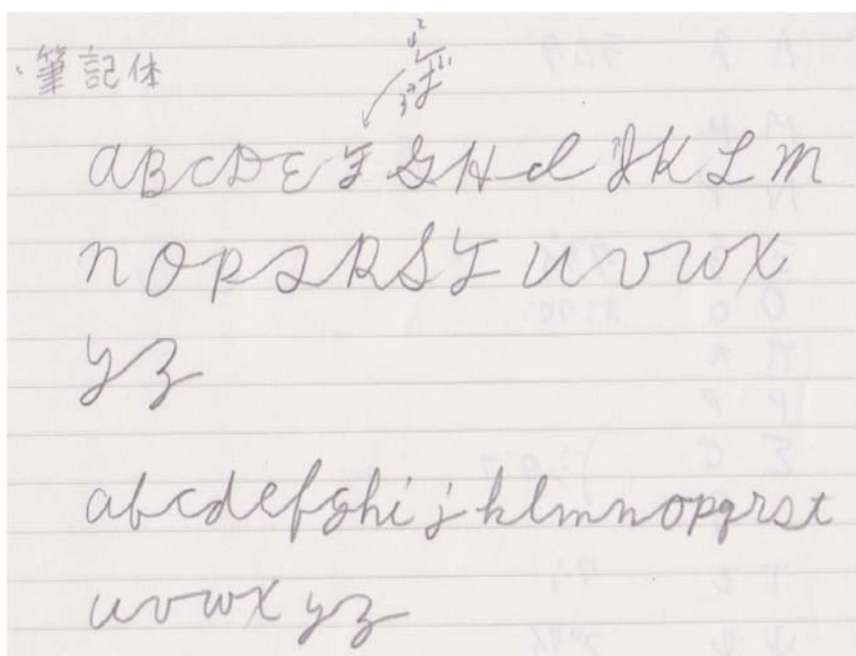 ・筆記体
ABCDEFGHIJKLM
NOPQRSTUVWX
YZ
abcdefghijklmnopqrst
uvwxyz